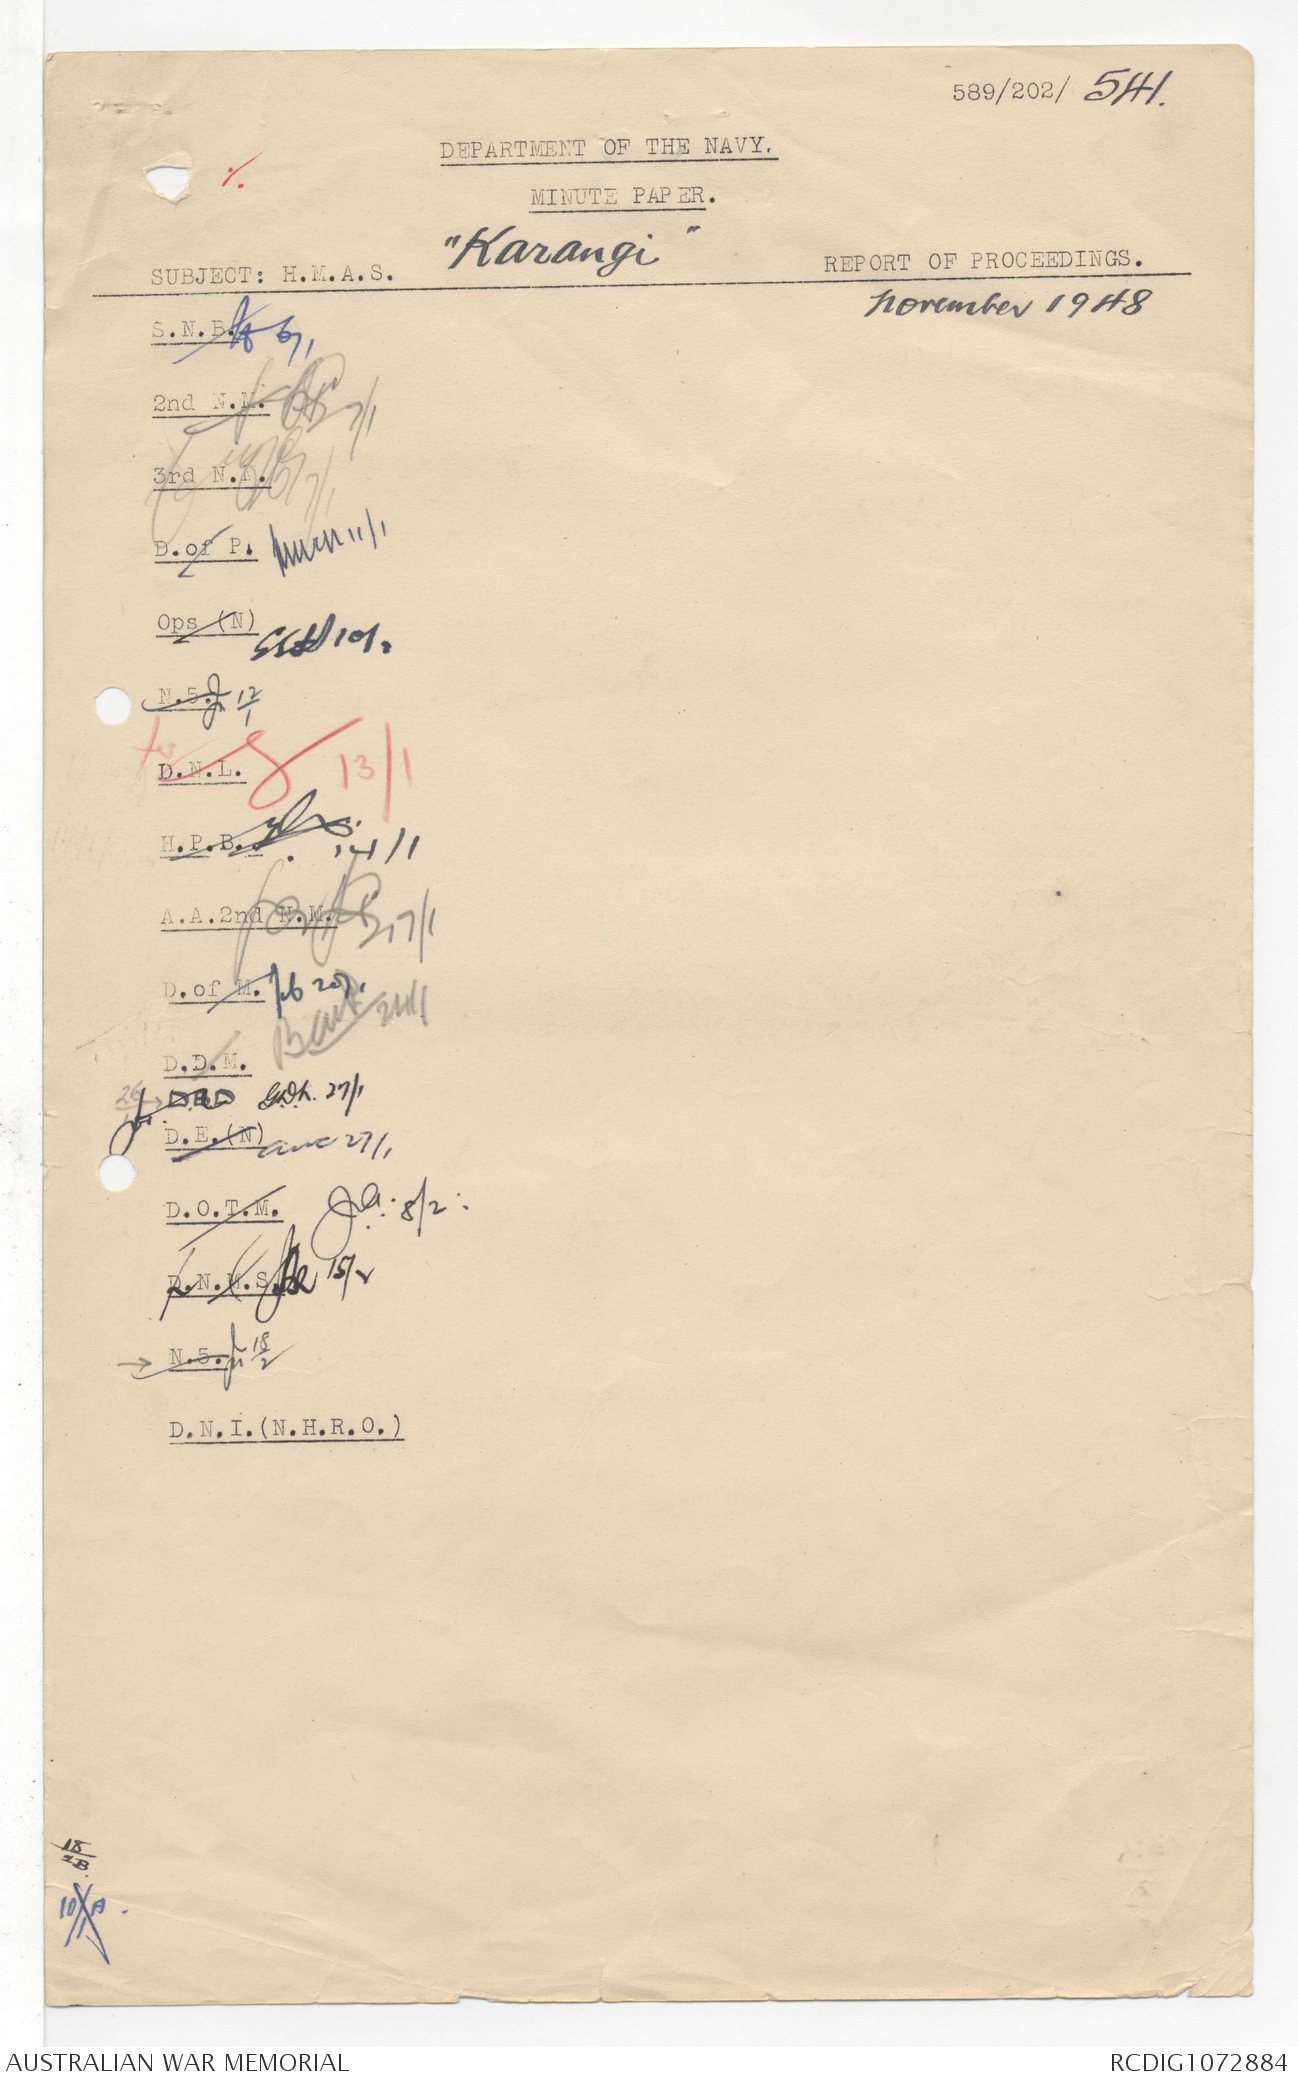 589/202/ 541.
DEPARTMENT OF THE NAVY.
MINUTE PAPER.
SUBJECT: H.M.A.S. "Karangi" REPORT OF PROCEEDINGS.
November 1948
S.N.B. 6/1
2nd N.M. 7/1
3rd N.M. 7/1
D.of P. 11/1
Ops (N) 10/1
N.5. 12/1
D.N.L. 13/1
H.P.B. 14/1
A.A.2nd N.M. 17/1
D.of M. 20/1
D.D.M. 24/1
26/1 → DED 27/1
D.E.(N) 27/1
D.O.T.M. 8/2
D.N.M.S. 15/2
→ N.5. 18/2
D.N.I.(N.H.R.O.)
18/2B.
AUSTRALIAN WAR MEMORIAL
RCDIG1072884